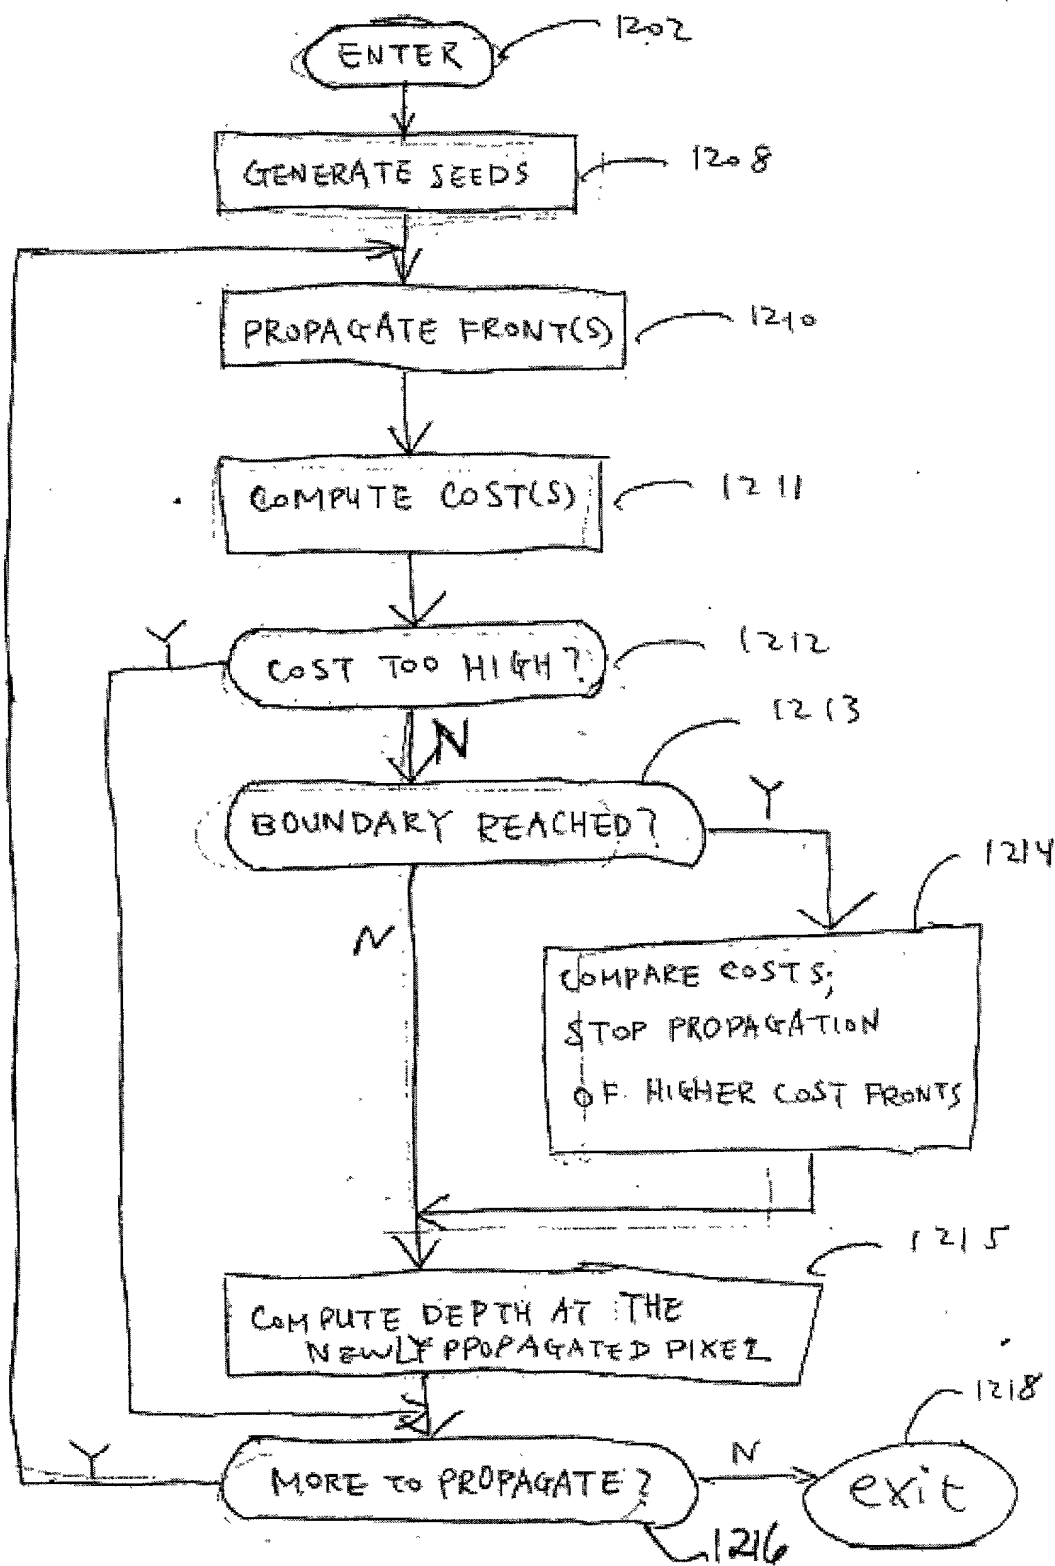 ENTER
1202
GENERATE SEEDS
1208
PROPAGATE FRONT(S)
1210
COMPUTE COST(S)
1211
Y
COST TOO HIGH?
1212
N
1213
BOUNDARY REACHED?
Y
1214
N
COMPARE COSTS;
STOP PROPAGATION
OF HIGHER COST FRONTS
1215
COMPUTE DEPTH AT THE
NEWLY PROPAGATED PIXEL
1218
Y
MORE TO PROPAGATE?
N
exit
1216